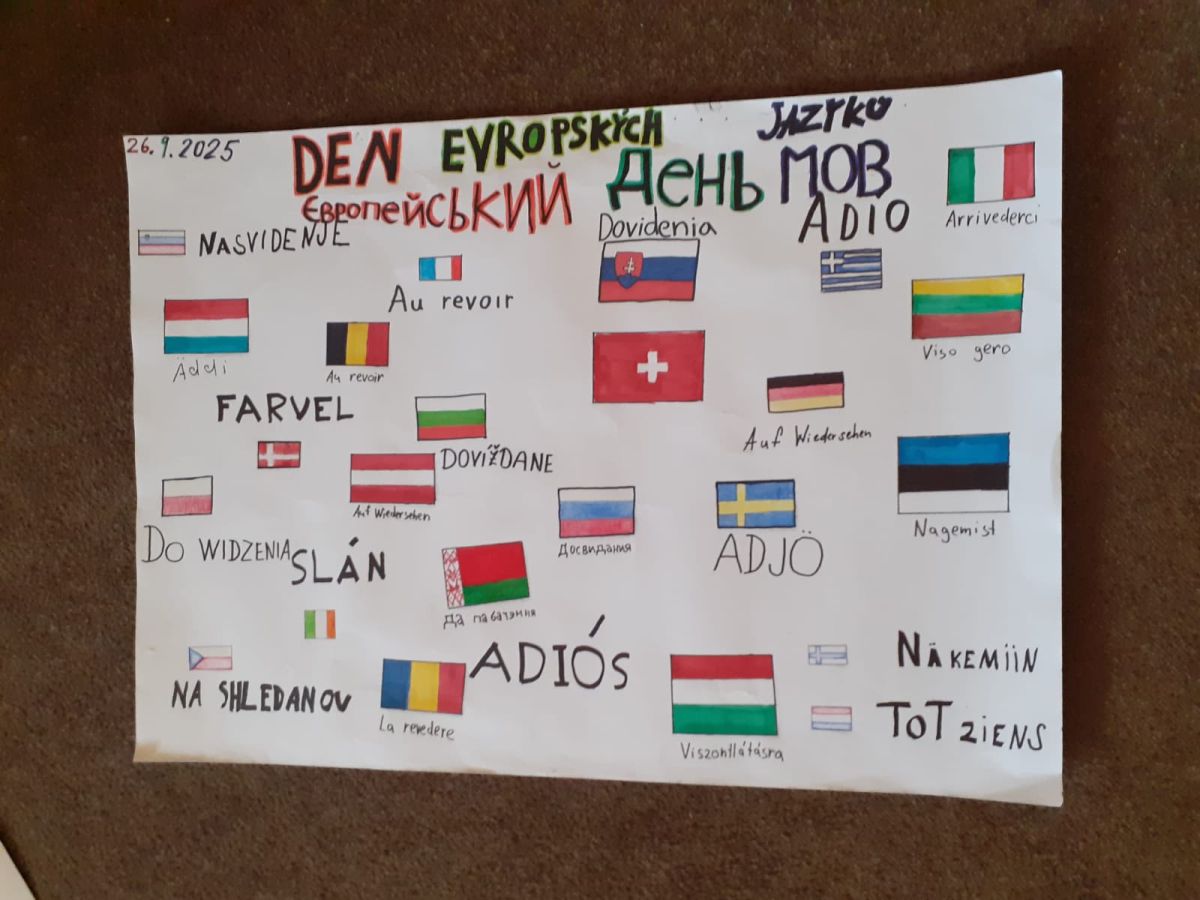 26.9.2025
DEN EVROPSKÝCH JAZYKŮ
ЄВРОПЕЙСЬКИЙ ДЕНЬ МОВ
NASVIDENJE
Dovidenia
ADIO
Arrivederci
Au revoir
Äddi
Au revoir
Viso gero
FARVEL
Auf Wiedersehen
DOVÍŽDANE
Auf Wiedersehen
Nagemist
DO WIDZENIA
SLÁN
Досвидания
ADJÖ
Да пабачэння
ADIÓS
NÄKEMIIN
NA SHLEDANOU
La revedere
Viszontlátásra
TOT ZIENS